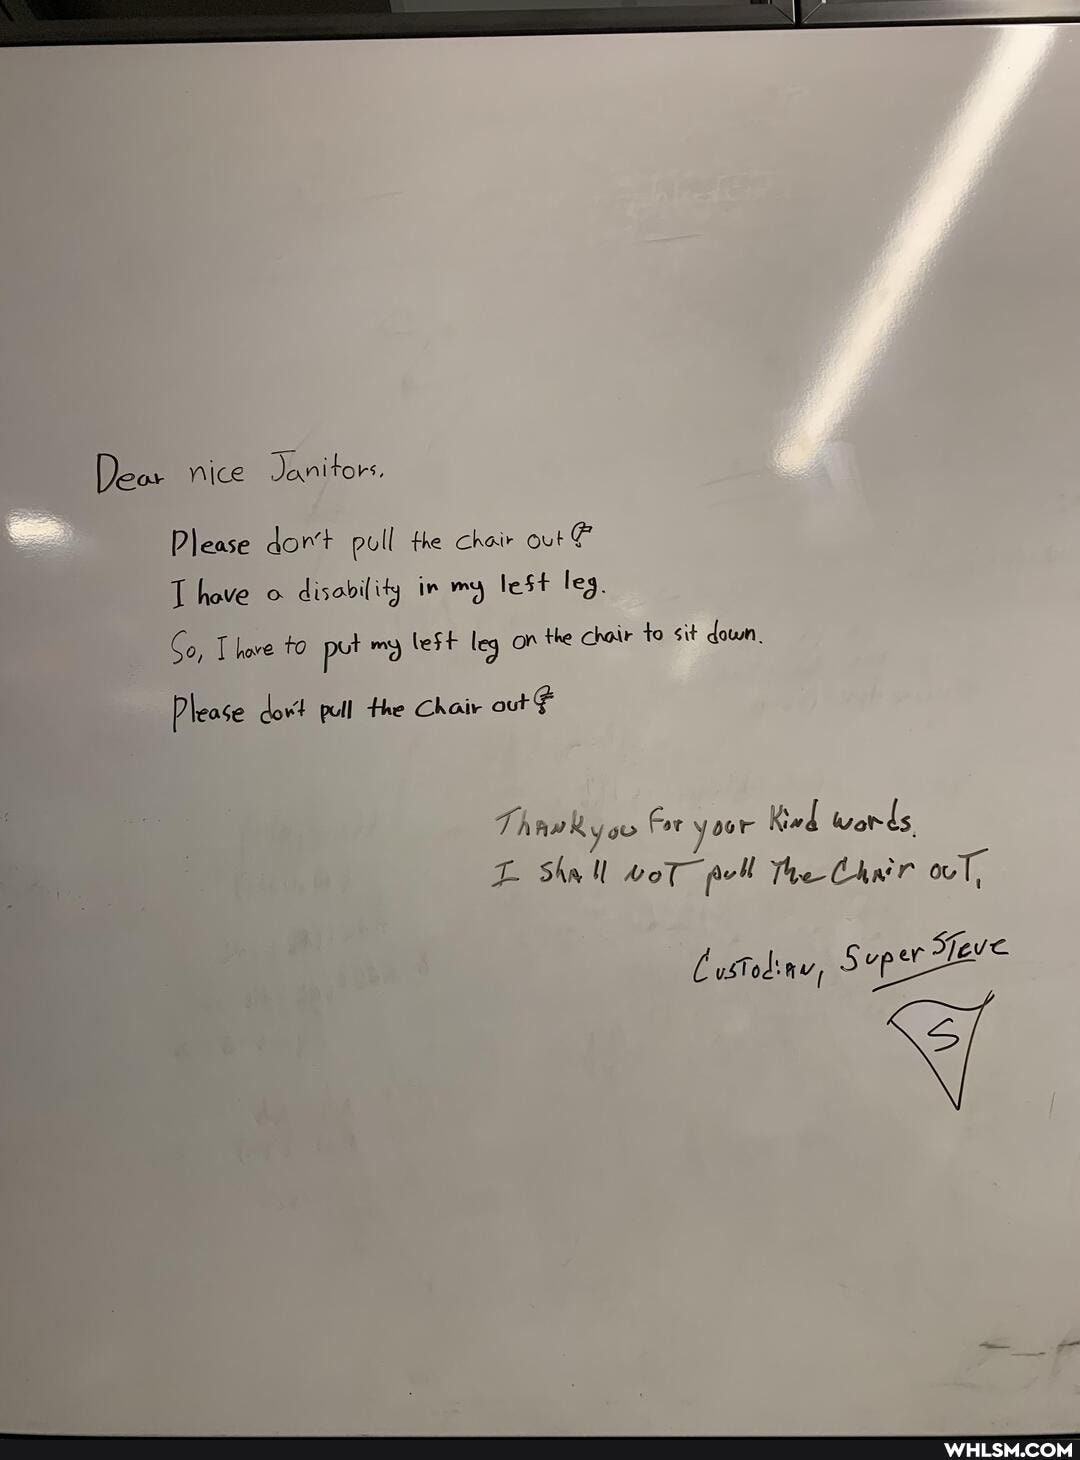 Dear nice Janitors,
Please don't pull the chair out!
I have a disability in my left leg.
So, I have to put my left leg on the chair to sit down.
Please don't pull the chair out!
Thank you for your Kind words.
I Shall NOT pull The Chair ouT,
CusTodian, Super STeve
S
WHLSM.COM